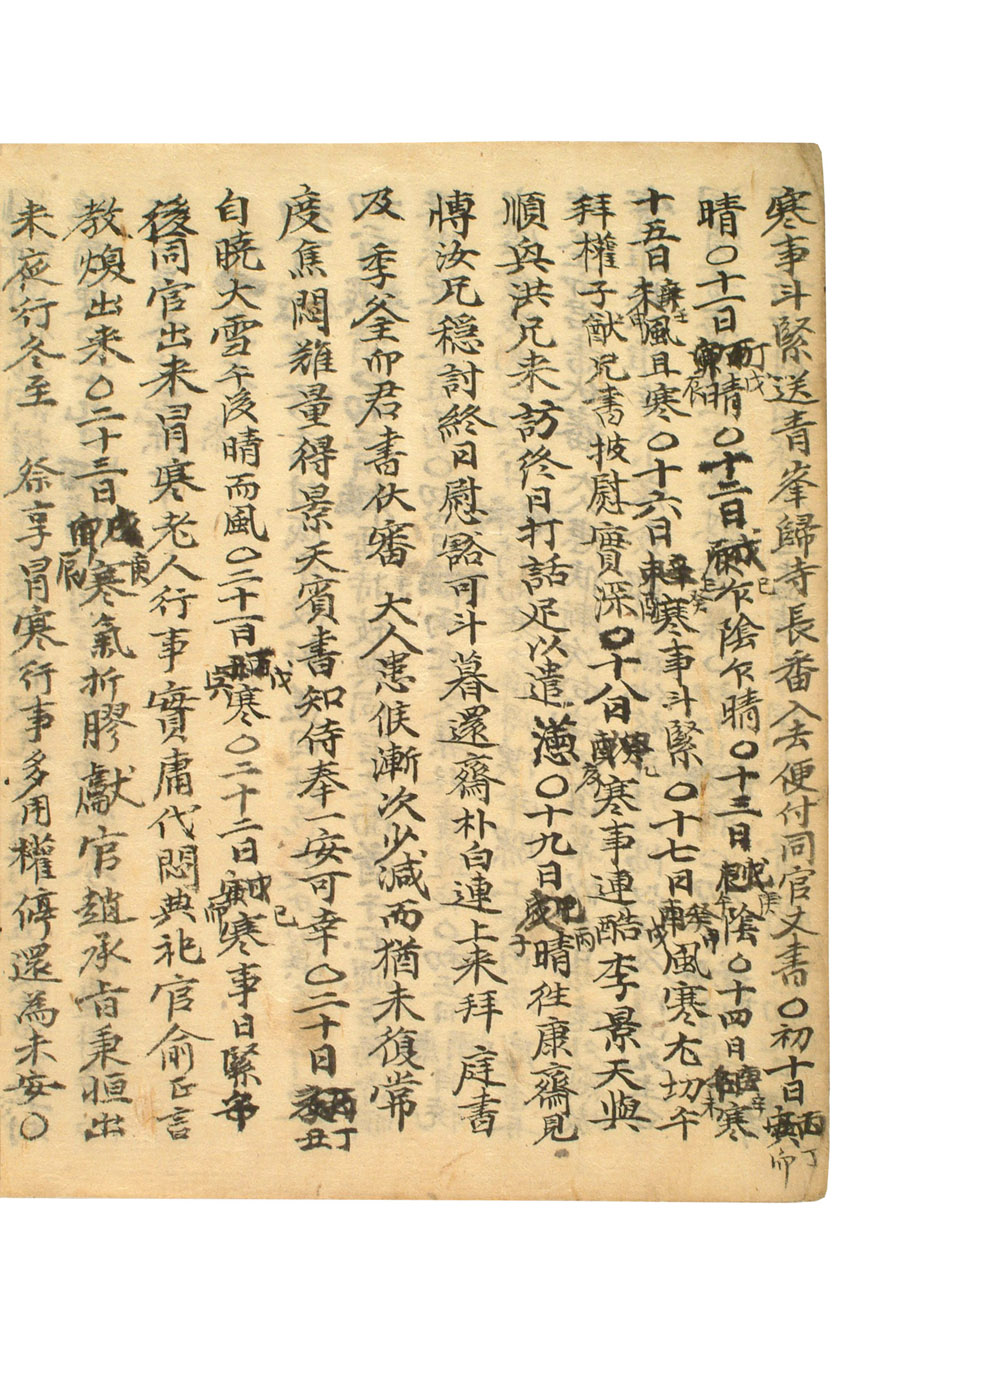 寒事斗緊送青峯歸寺長番入去便付同官丈書○初十日丁卯
晴○十一日戊辰晴○十二日己巳乍陰乍晴○十三日庚午陰○十四日辛未寒
十五日壬申風且寒○十六日癸酉寒事斗緊○十七日甲戌風寒尤切午
拜權子猷兄書披慰實深○十八日乙亥寒事連酷李景天與
順與洪兄来訪終日打話足以遣懑○十九日丙子晴往康齋見
博汝兄穩討終日慰豁可斗暮還齋朴白連上来拜 庭書
及 季父主卯君書伏審 大人患候漸次少減而猶未復常
度焦悶難量得景天賓書知侍奉一安可幸○二十日丁丑
自曉大雪午後晴而風○二十一日戊寅寒○二十二日己卯寒事日緊午
後同官出来冒寒老人行事實庸代悶典祀官俞正言
教煥出来○二十三日庚辰寒氣折膠獻官趙承旨秉恒出
来夜行冬至 祭享冒寒行事多用權停還為未安○